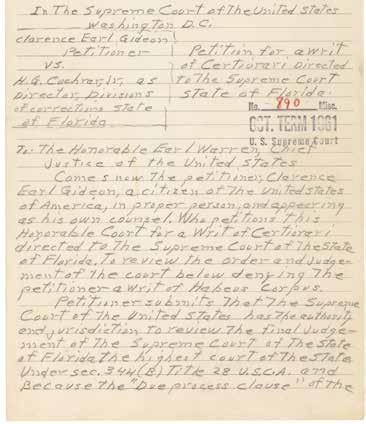 In The Supreme Court of The United States
Washington D.C.
Clarence Earl Gideon
Petitioner
vs.
H.G. Cochran, Jr., as
Director, Divisions
of corrections State
of Florida
Petition for a writ
of Certiorari Directed
to The Supreme Court
State of Florida.
No. 790 Misc.
OCT. TERM 1961
U. S. Supreme Court
To: The Honorable Earl Warren, Chief
Justice of the United States
Comes now The petitioner, Clarence
Earl Gideon, a citizen of The United states
of America, in proper person, and appearing
as his own counsel. Who petitions this
Honorable Court for a Writ of Certiorari
directed to The Supreme Court of The State
of Florida. To review the order and Judge-
ment of the court below denying The
petitioner a writ of Habeus Corpus.
Petitioner submits That The Supreme
Court of The United States has The authority
and jurisdiction to review the final Judge-
ment of The Supreme Court of The State
of Florida the highest court of The State
Under sec. 344(B) Title 28 U.S.C.A. and
Because the "Due process clause" of the